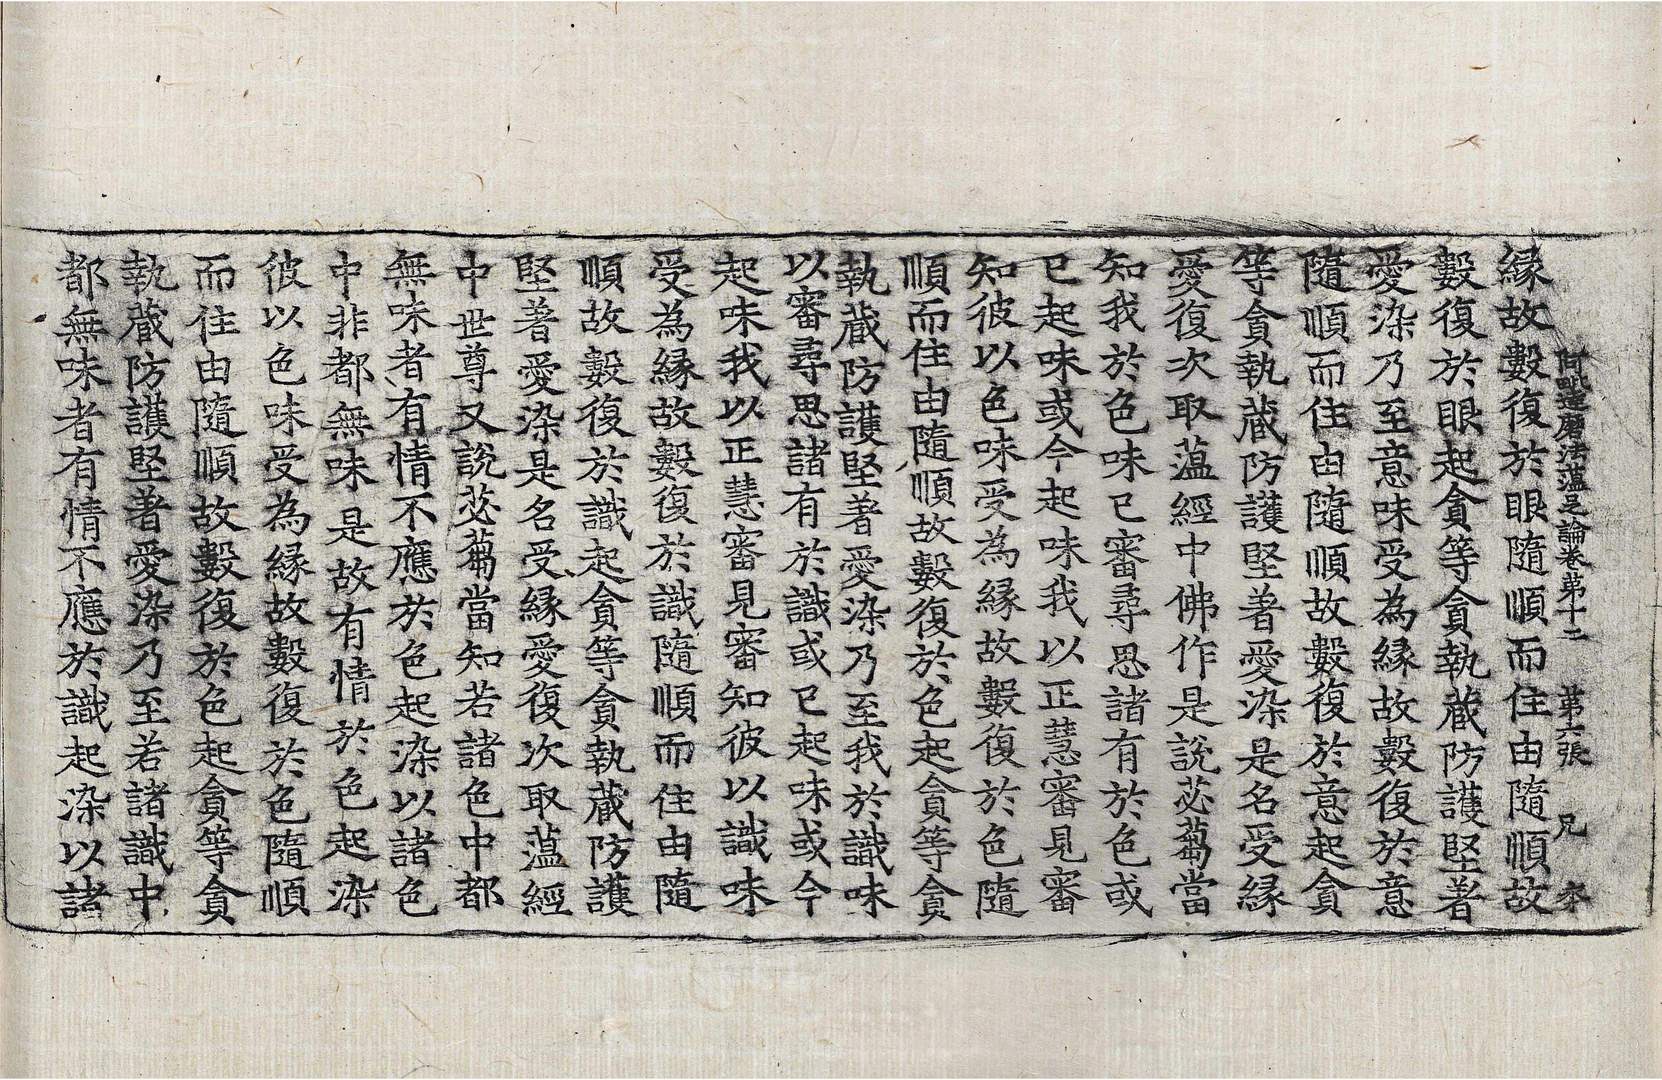 阿毗達磨法蘊足論卷第十二　第六張　兄
縁故數復於眼隨順而住由隨順故
數復於眼起貪等貪執藏防護堅著
愛染乃至意味受為縁故數復於意
隨順而住由隨順故數復於意起貪
等貪執藏防護堅著愛染是名受縁
愛復次取蕰經中佛作是說苾蒭當
知我於色味已審尋思諸有於色或
已起味或今起味我以正慧審見審
知彼以色味受為縁故數復於色隨
順而住由隨順故數復於色起貪等貪
執藏防護堅著愛染乃至我於識味
以審尋思諸有於識或已起味或今
起味我以正慧審見審知彼以識味
受為縁故數復於識隨順而住由隨
順故數復於識起貪等貪執藏防護
堅著愛染是名受縁愛復次取蕰經
中世尊又說苾蒭當知若諸色中都
無味者有情不應於色起染以諸色
中非都無味是故有情於色起染
彼以色味受為縁故數復於色隨順
而住由隨順故數復於色起貪等貪
執藏防護堅著愛染乃至若諸識中
都無味者有情不應於識起染以諸